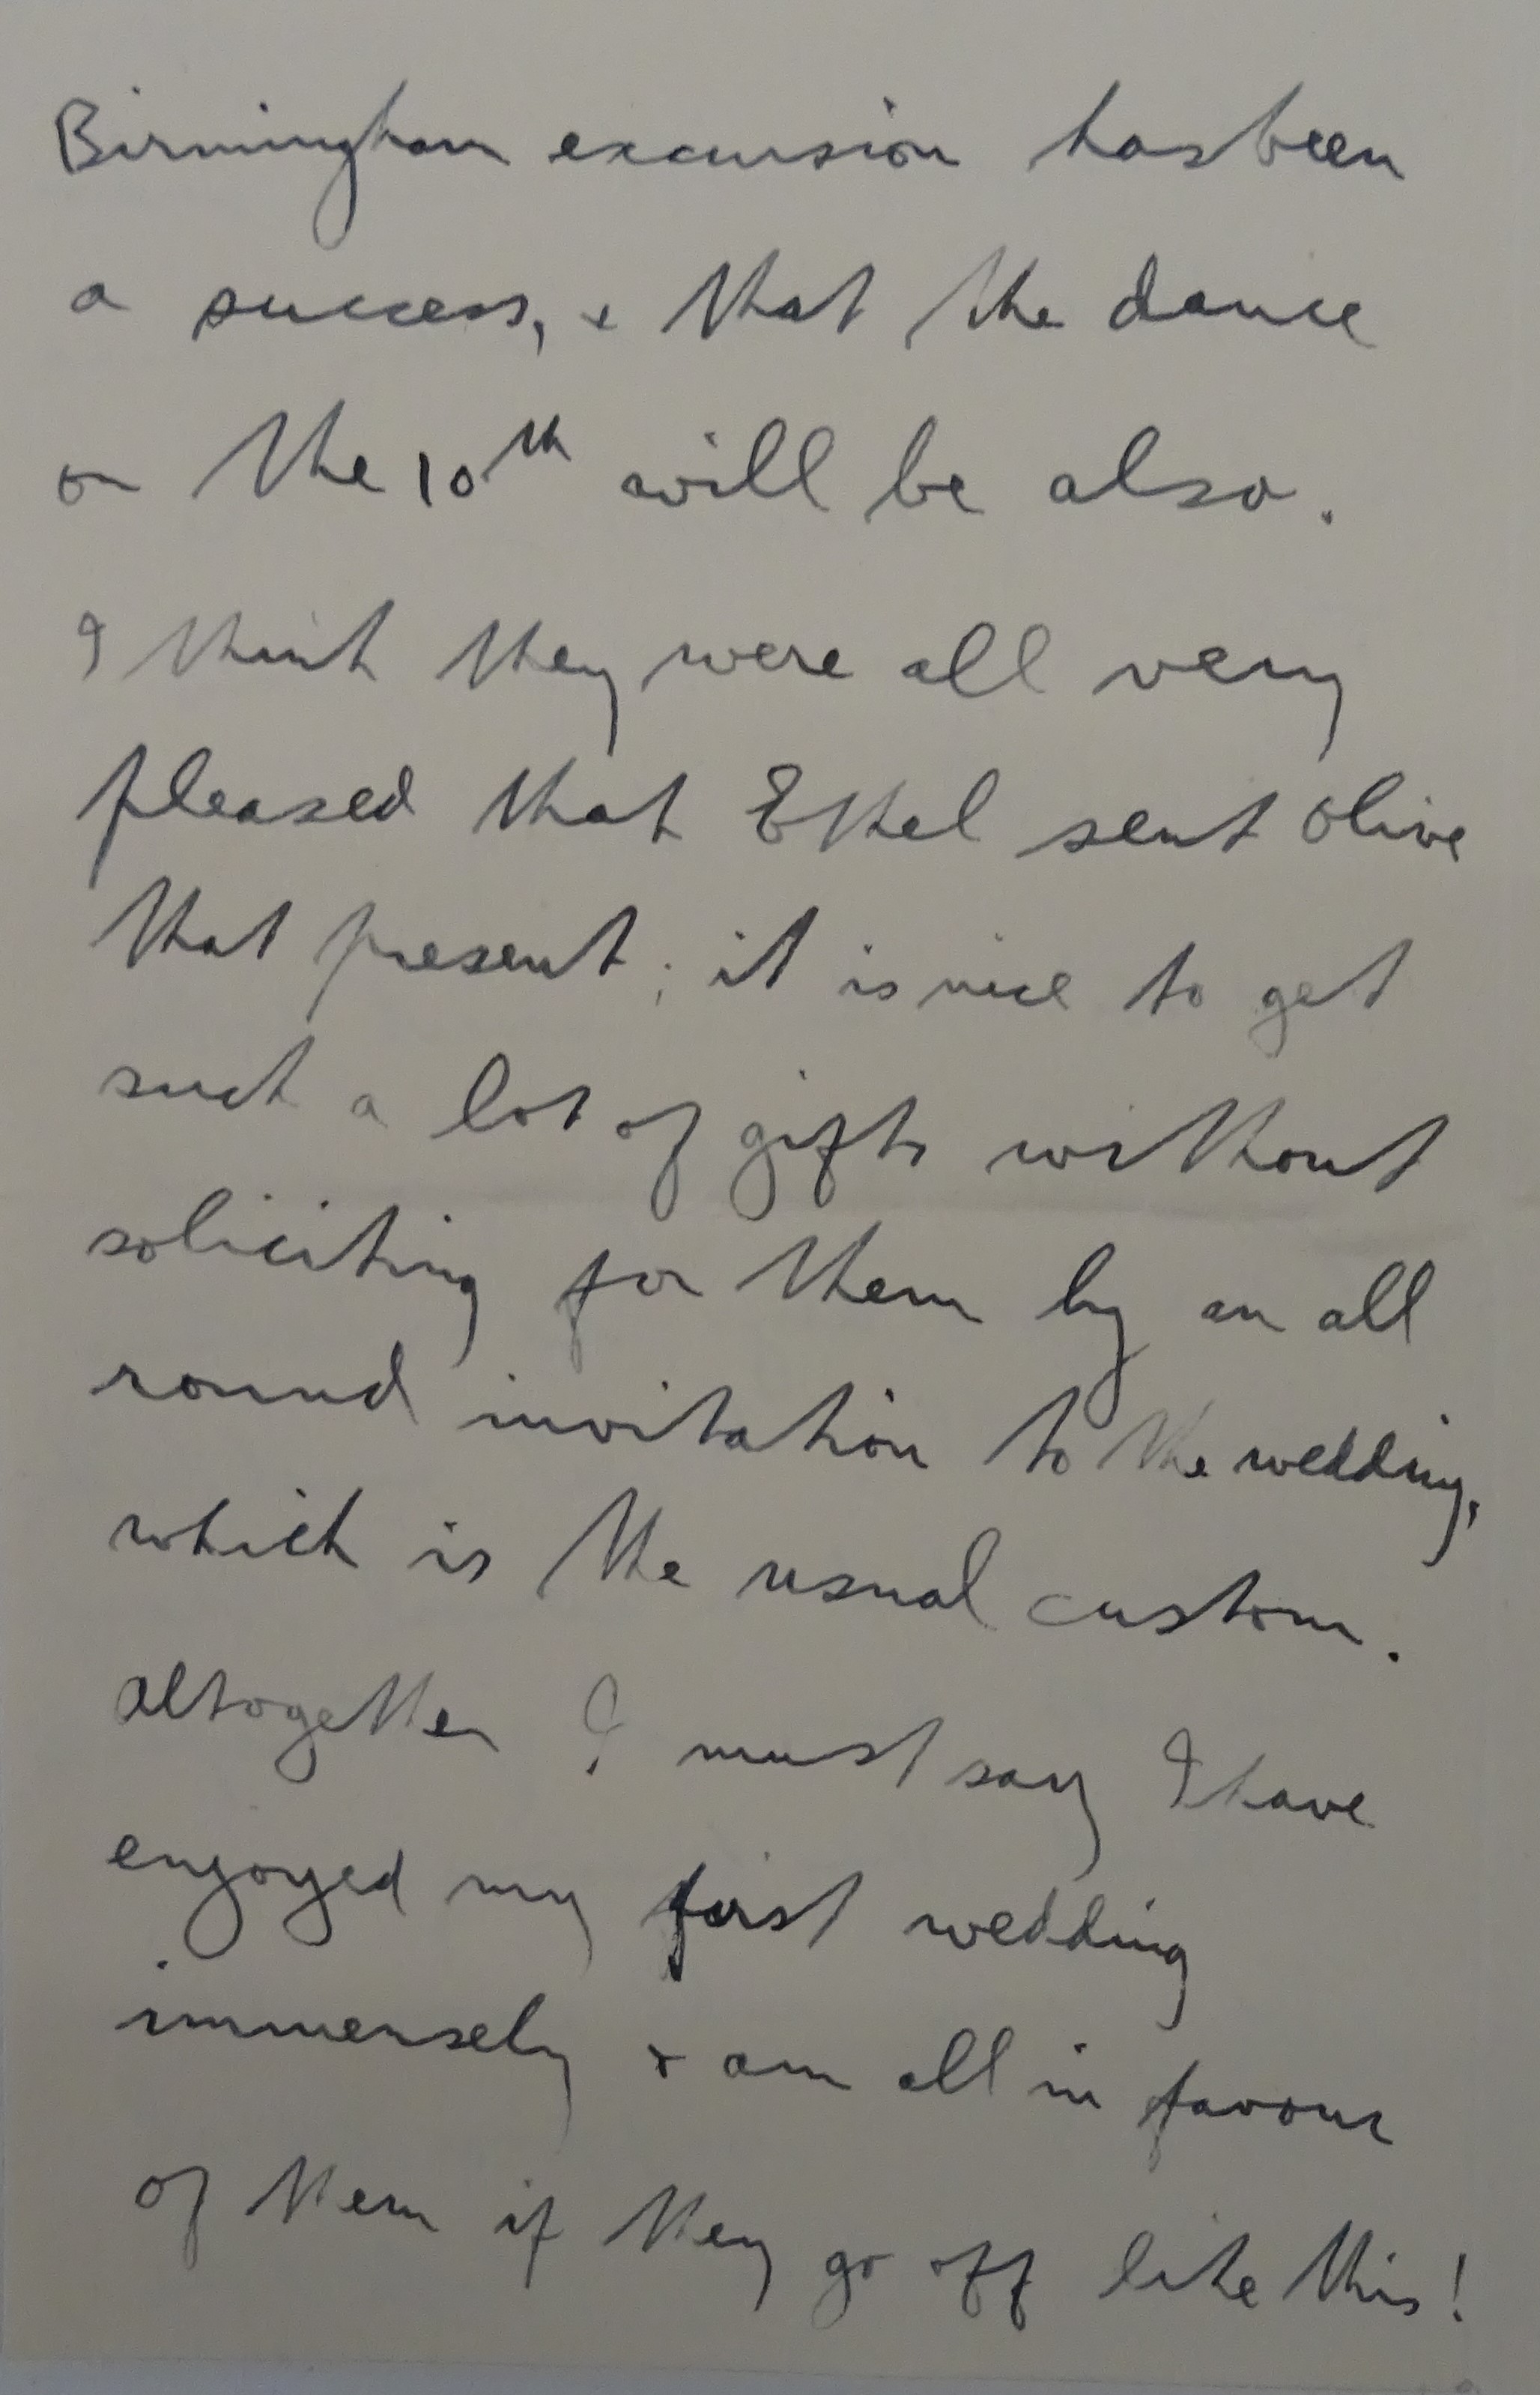 Birmingham excursion has been
a success, & that the dance
on the 10th will be also.
I think they were all very
pleased that Ethel sent Olive
that present; it is nice to get
such a lot of gifts without
soliciting for them by an all
round invitation to the wedding,
which is the usual custom.
Altogether I must say I have
enjoyed my first wedding
immensely & am all in favour
of them if they go off like this!